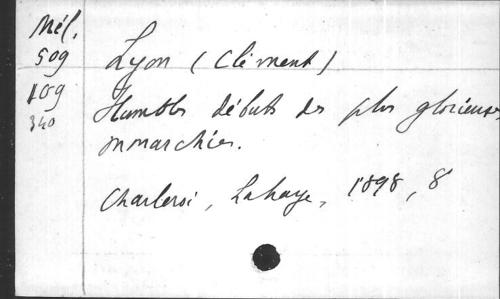 Mél.
509
109
340
Lyon (Clément)
Humbles débuts des plus glorieuses
monarchies.
Charleroi, Lahaye, 1898, 8